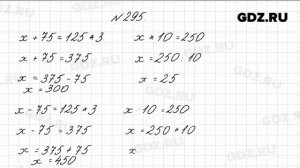 GDZ.RU
№295
x + 75 = 125 * 3
x + 75 = 375
x = 375 - 75
x = 300
x - 75 = 125 * 3
x - 75 = 375
x = 375 + 75
x = 450
x * 10 = 250
x = 250 : 10
x = 25
x : 10 = 250
x = 250 * 10
x
GDZ.RU